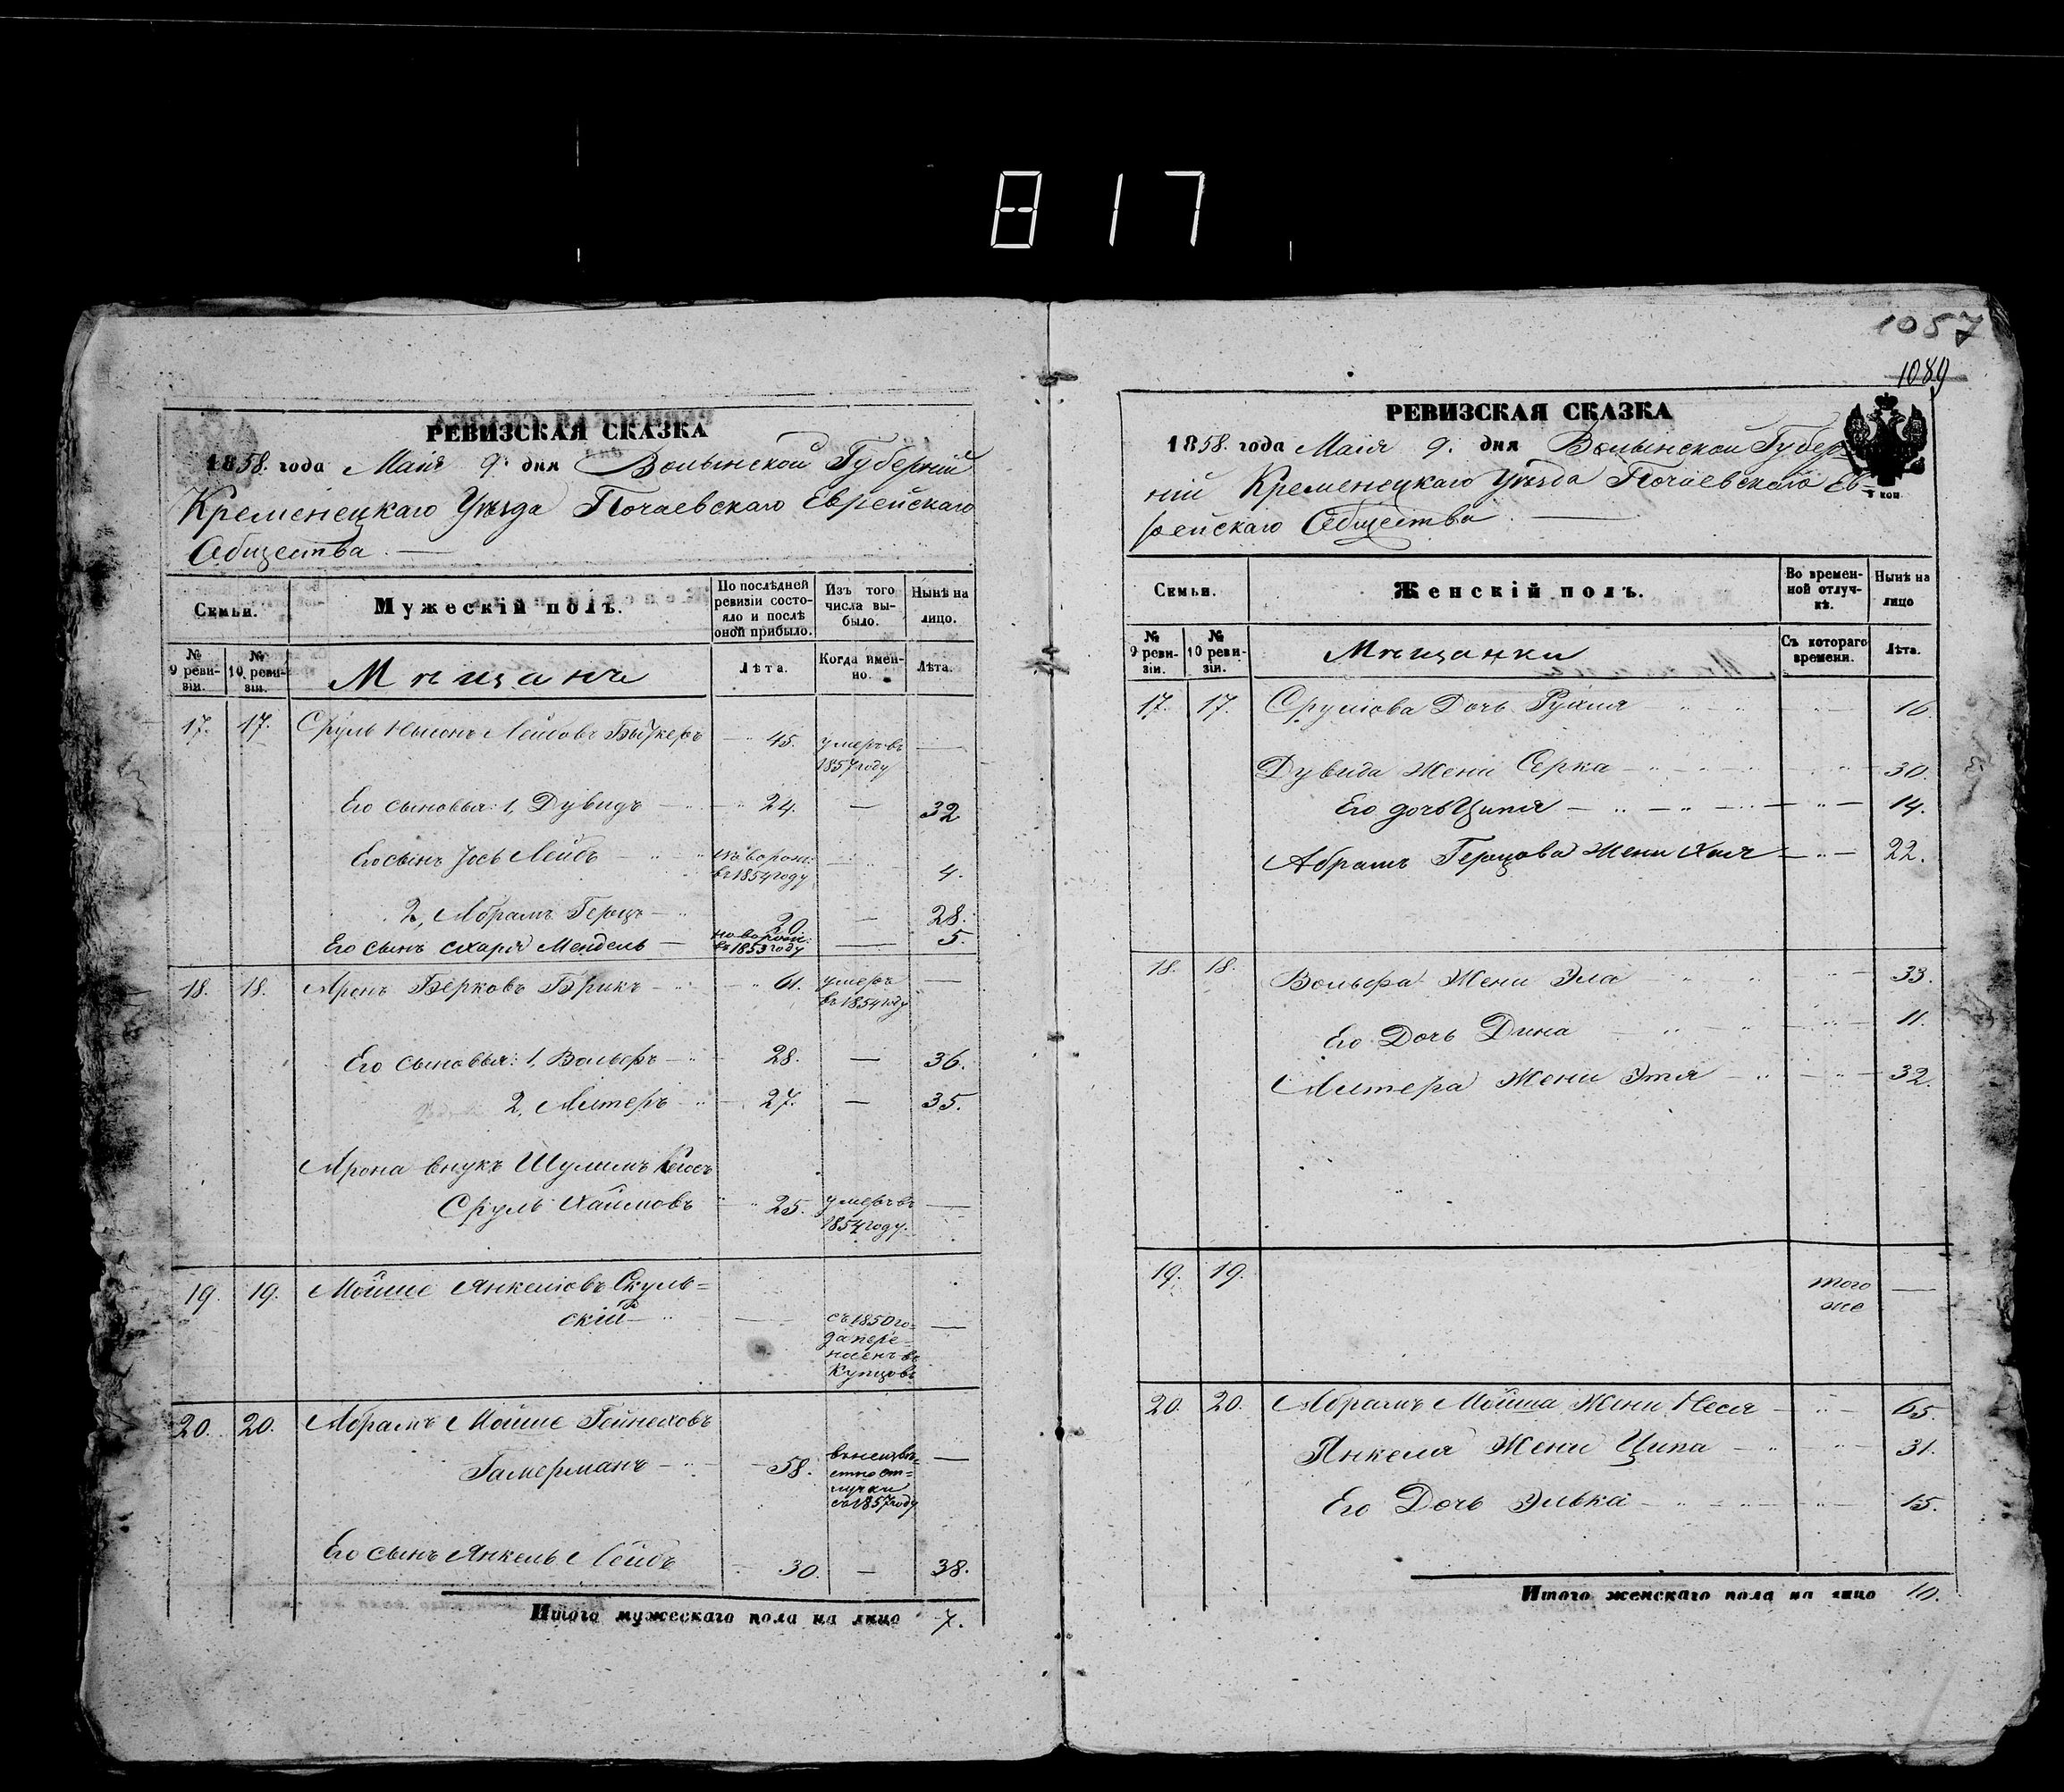 817
РЕВИЗСКАЯ СКАЗКА
1858. года Маія 9. дня Волынской Губерніи
Кременецкаго Уѣзда Почаевскаго Еврейскаго
Общества
Семьи.
Мужескій полъ.
По послѣдней ревизіи состояло и послѣ оной прибыло.
Изъ того числа выбыло.
Нынѣ на лицо.
№ 9 ревизіи.
№ 10 ревизіи.
Мѣщане
Лѣта.
Когда именно.
Лѣта.
17. 17. Сруль Нысонъ Лейбовъ 45. умеръ въ 1857 году —
Его сыновья: 1, Дувидъ 24. — 32
Его сынъ Іось Лейбъ новорож: въ 1854 году — 4.
2, Абрамъ Герцъ 20. — 28.
Его сынъ Мендель новорож: въ 1853 году — 5.
18. 18. Аронъ Берковъ Брикъ 61. умеръ въ 1854 году —
Его сыновья: 1, Вольфъ 28. — 36.
2, Алтеръ 27. — 35.
Арона внукъ Шулимъ
Сруль Хаимовъ 25. умеръ въ 1854 году. —
19. 19. Мойше Янкелювъ Скуль=
скій — съ 1850 го=
да пере=
численъ въ
Купцовъ —
20. 20. Абрамъ Мойше Гейнеховъ
Гамерманъ 58. въ неизвѣ=
стно от=
лучки
съ 1857 году —
Его сынъ Янкель Лейбъ 30. — 38.
Итого мужескаго пола на лицо 7.
1057
1089
РЕВИЗСКАЯ СКАЗКА
1858. года Маія 9. дня Волынской Губер=
ніи Кременецкаго Уѣзда Почаевскаго Ев=
рейскаго Общества
коп
Семьи.
Женскій полъ.
Во временной отлучкѣ.
Нынѣ на лицо
№ 9 ревизіи.
№ 10 ревизіи.
Мѣщанки
Съ котораго времени.
Лѣта.
17. 17. Срулюва Дочь Рухля 16.
Дувида Жена Серка 30.
Его дочь Ципя 14.
Абрамъ Герцова Жена Хая 22.
18. 18. Вольфа Жена Эла 33.
Его Дочь Дина 11.
Алтера Жена Этя 32.
19. 19. того
же —
20. 20. Абрамъ Мойша Жена Неся 65.
Янкеля Жена Ципа 31.
Его Дочь Элька 15.
Итого женскаго пола на лицо 10.